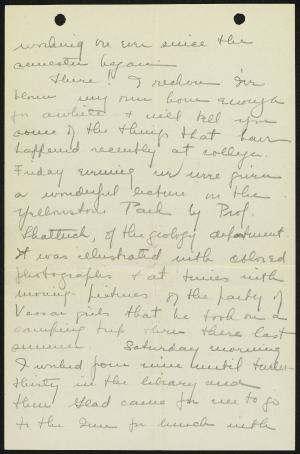 working on ever since the
semester began.
There! I reckon I've
blown my own horn enough
for awhile & will tell you
some of the things that have
happened recently at college.
Friday evening we were given
a wonderful lecture on the
Yellowstone Park by Prof.
Shattuck, of the geology department.
It was illustrated with colored
photographs & at times with
moving pictures of the party of
Vassar girls that he took on a
camping trip out there last
summer. Saturday morning
I worked from nine until twelve-
thirty in the library and
then Glad came for me to go
to the Inn for lunch with